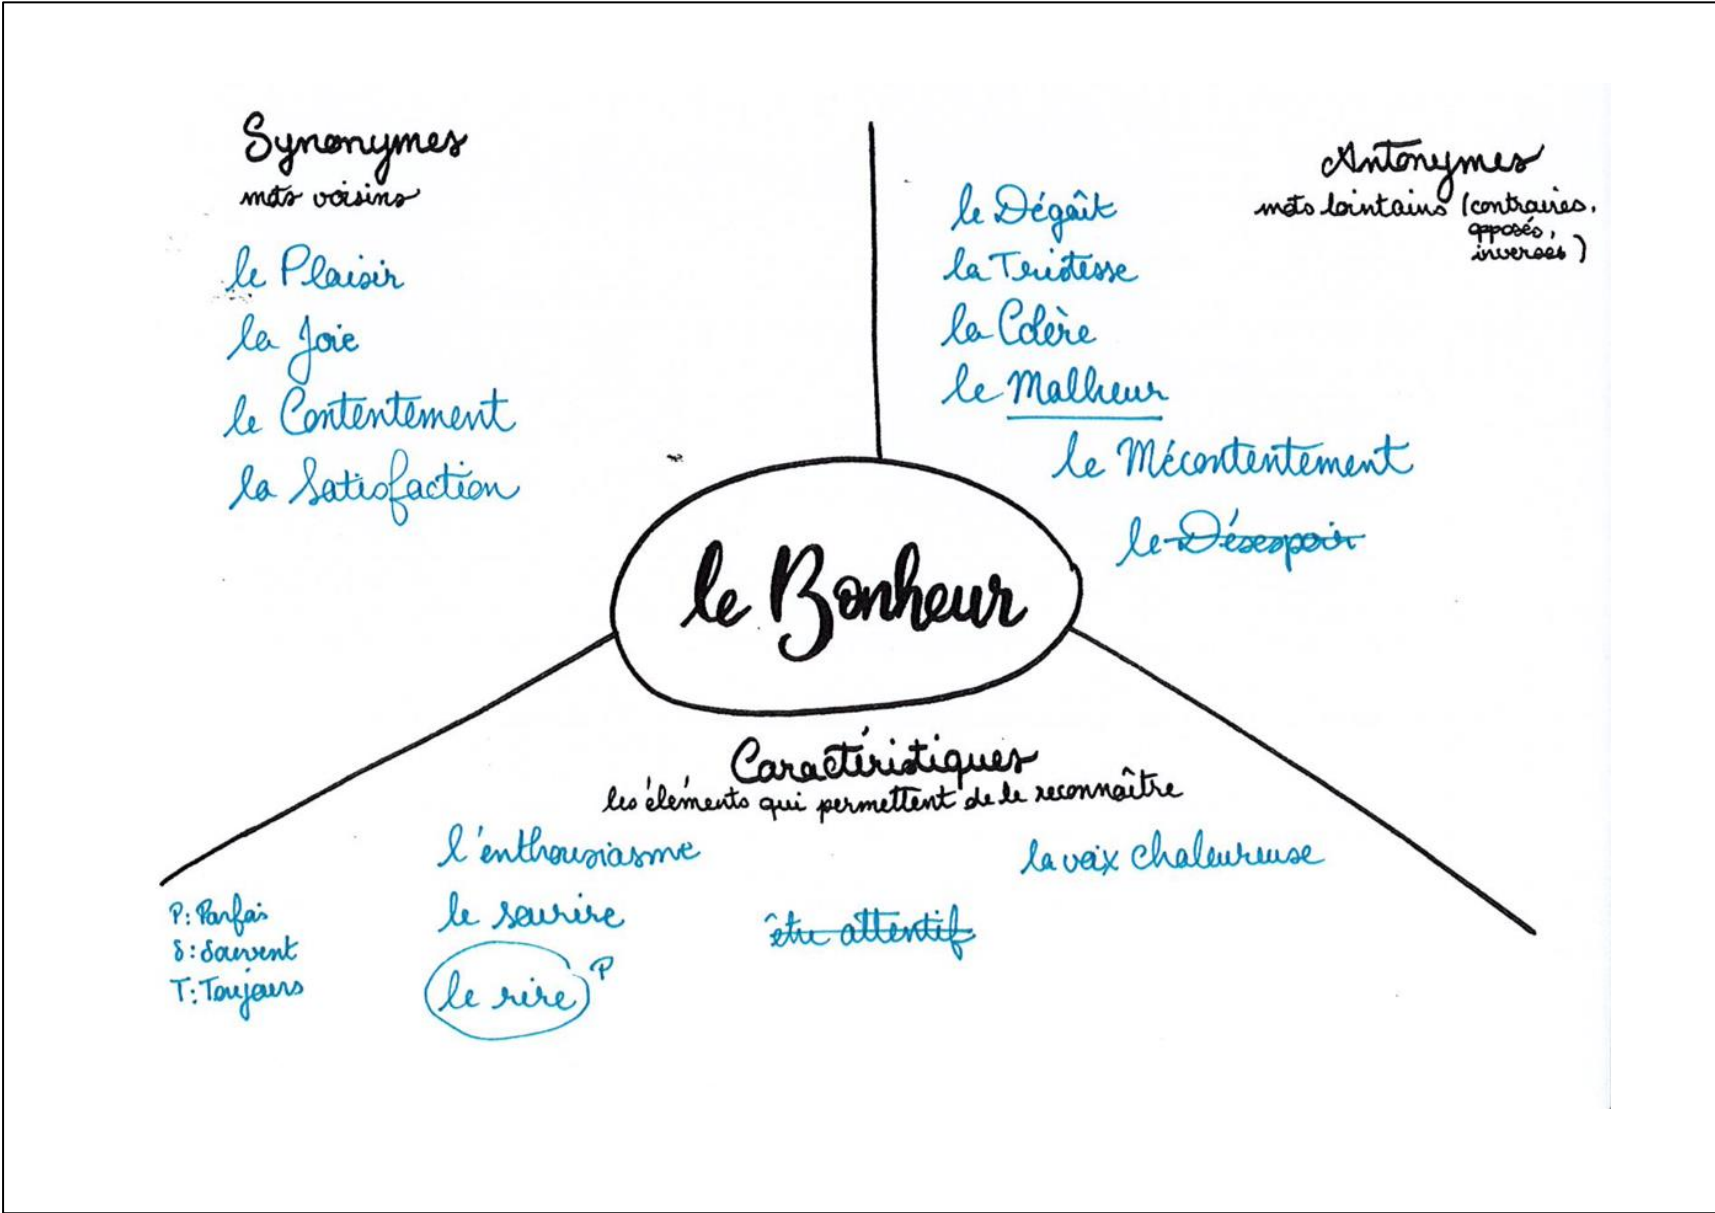 Synonymes
mots voisins
le Plaisir
la Joie
le Contentement
la Satisfaction
Antonymes
mots lointains (contraires,
opposés,
inverses)
le Dégoût
la Tristesse
la Colère
le Malheur
le Mécontentement
le Désespoir
le Bonheur
Caractéristiques
les éléments qui permettent de le reconnaître
l'enthousiasme
le sourire
le rire P
être attentif
la voix chaleureuse
P: Parfois
S: Souvent
T: Toujours